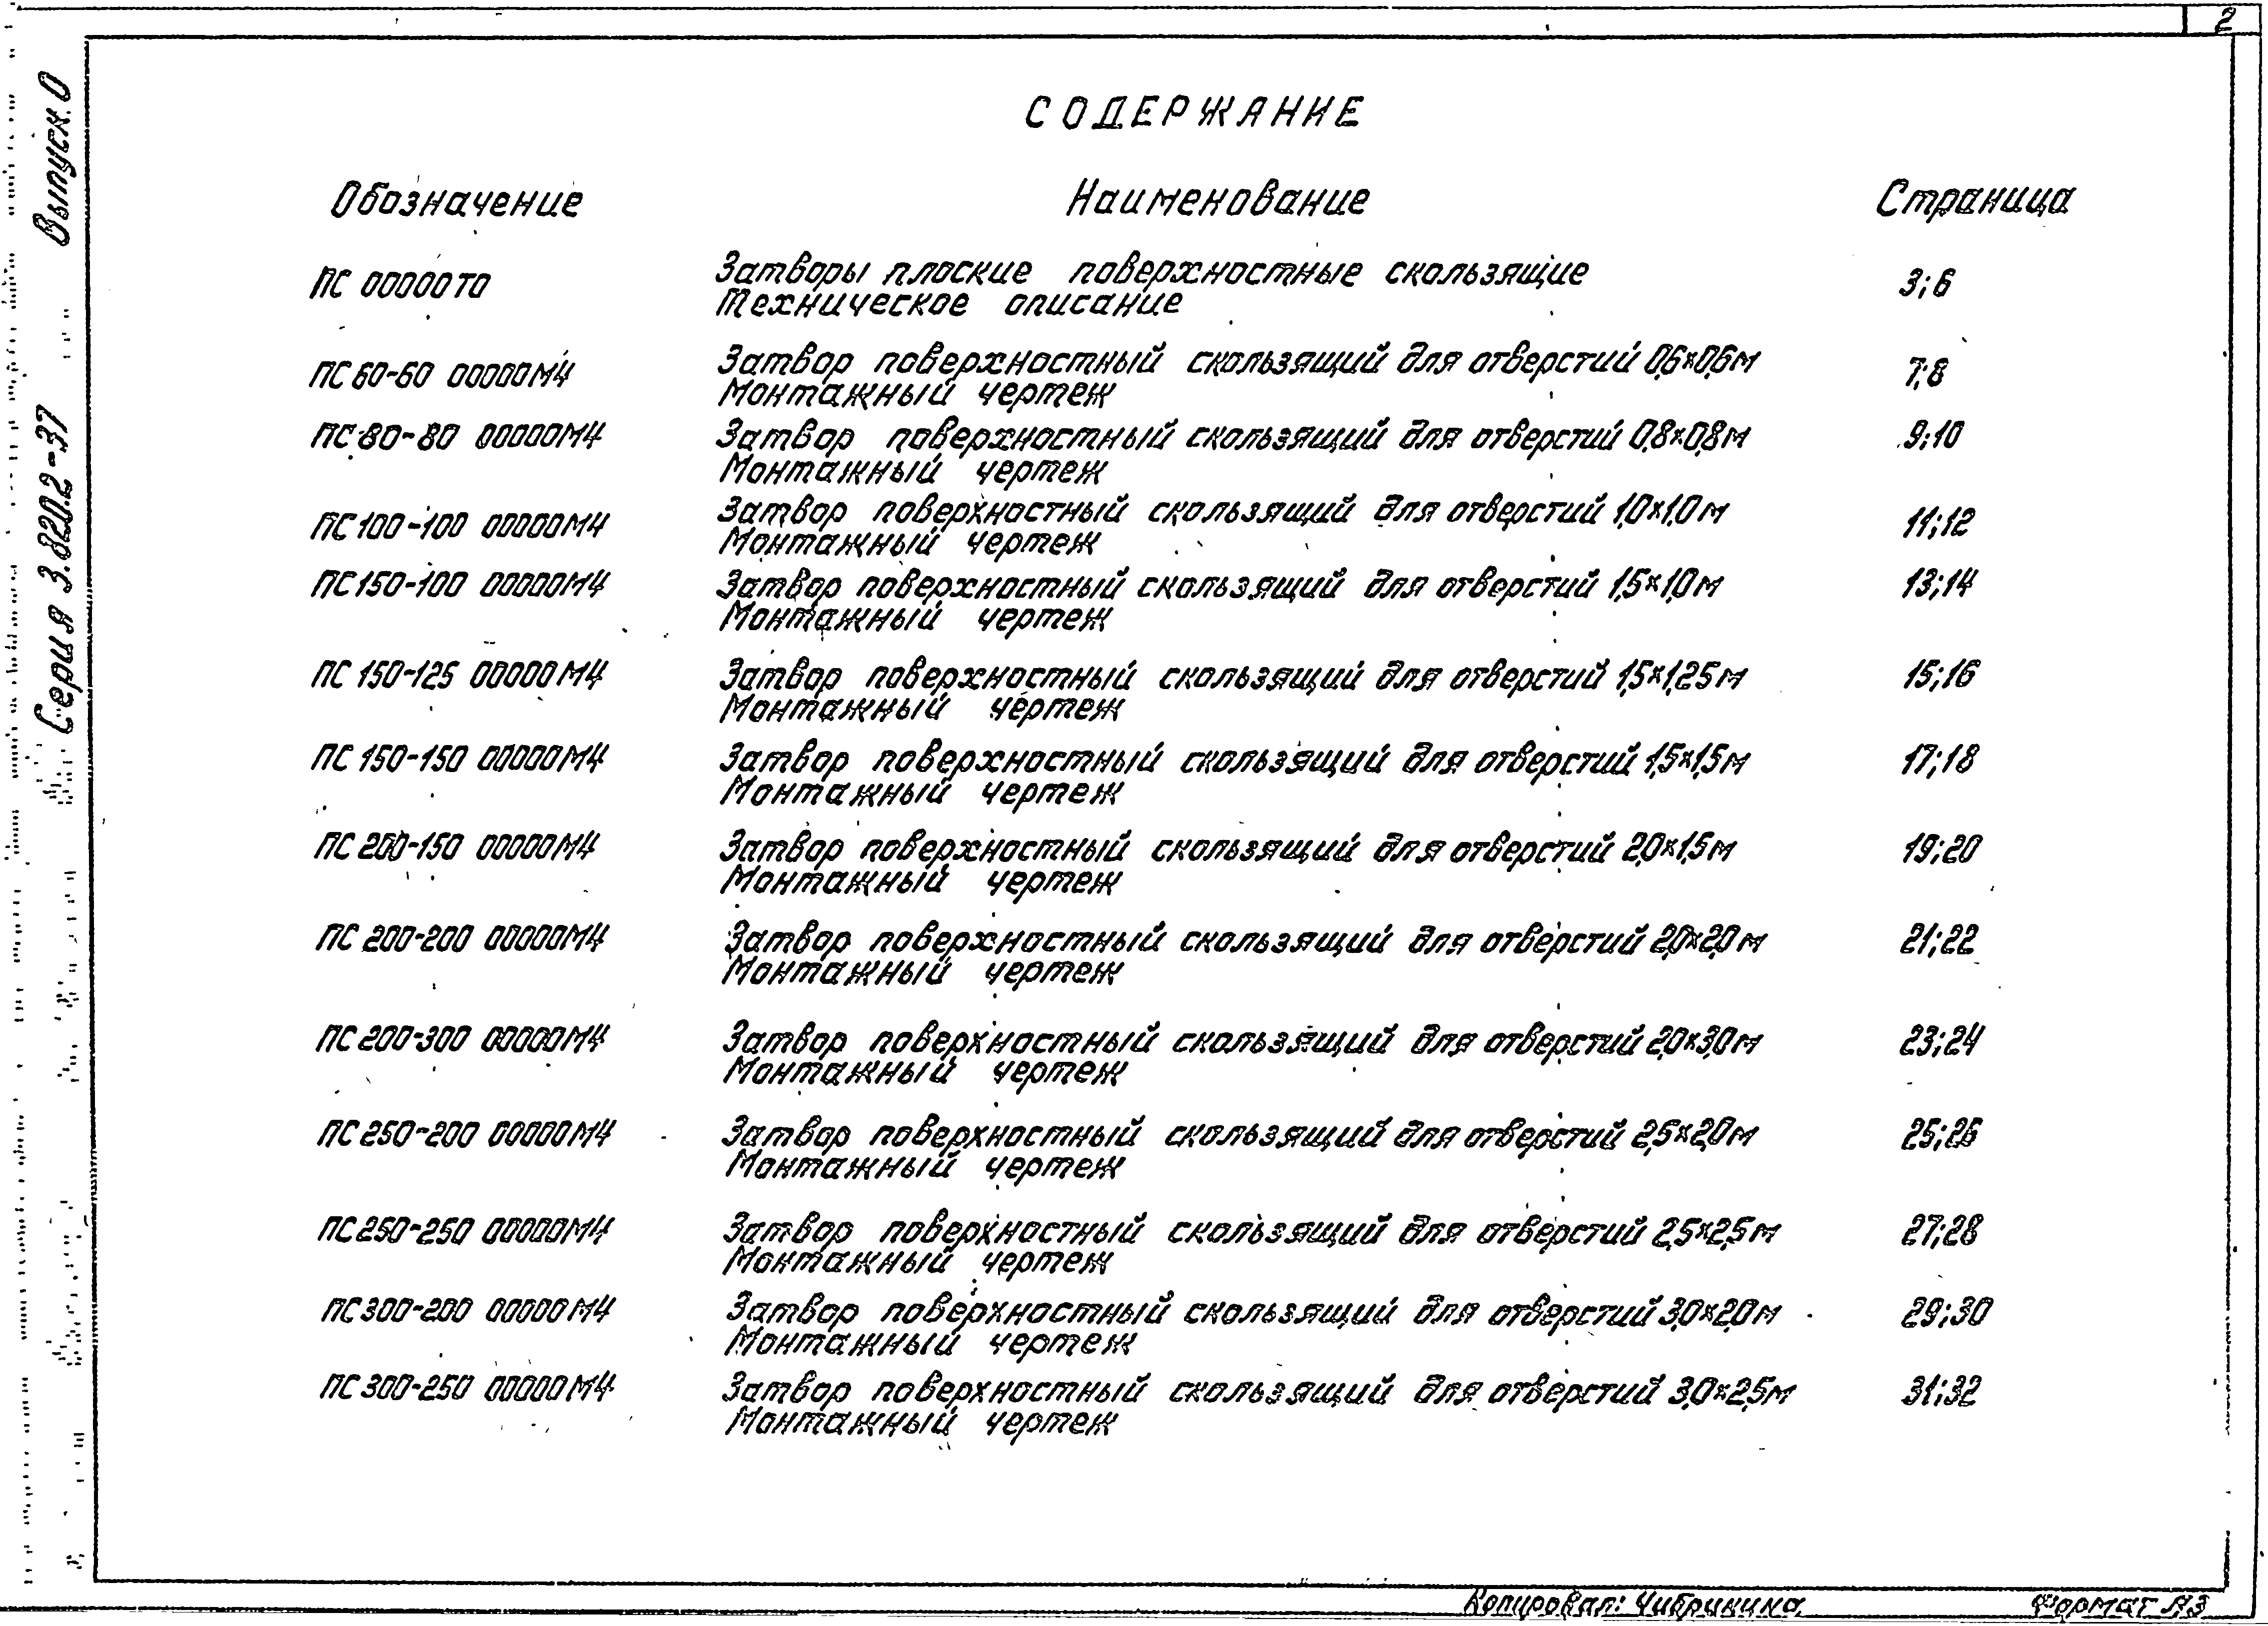 2
Серия 3.820.2-37 Выпуск 0
СОДЕРЖАНИЕ
Обозначение Наименование Страница
ПС 00000ТО Затворы плоские поверхностные скользящие 3;6
Техническое описание
ПС 60-60 00000МЧ Затвор поверхностный скользящий для отверстий 0,6×0,6м 7;8
Монтажный чертеж
ПС 80-80 00000МЧ Затвор поверхностный скользящий для отверстий 0,8×0,8м 9;10
Монтажный чертеж
ПС 100-100 00000МЧ Затвор поверхностный скользящий для отверстий 1,0×1,0м 11;12
Монтажный чертеж
ПС 150-100 00000МЧ Затвор поверхностный скользящий для отверстий 1,5×1,0м 13;14
Монтажный чертеж
ПС 150-125 00000МЧ Затвор поверхностный скользящий для отверстий 1,5×1,25м 15;16
Монтажный чертеж
ПС 150-150 00000МЧ Затвор поверхностный скользящий для отверстий 1,5×1,5м 17;18
Монтажный чертеж
ПС 200-150 00000МЧ Затвор поверхностный скользящий для отверстий 2,0×1,5м 19;20
Монтажный чертеж
ПС 200-200 00000МЧ Затвор поверхностный скользящий для отверстий 2,0×2,0м 21;22
Монтажный чертеж
ПС 200-300 00000МЧ Затвор поверхностный скользящий для отверстий 2,0×3,0м 23;24
Монтажный чертеж
ПС 250-200 00000МЧ Затвор поверхностный скользящий для отверстий 2,5×2,0м 25;26
Монтажный чертеж
ПС 250-250 00000МЧ Затвор поверхностный скользящий для отверстий 2,5×2,5м 27;28
Монтажный чертеж
ПС 300-200 00000МЧ Затвор поверхностный скользящий для отверстий 3,0×2,0м 29;30
Монтажный чертеж
ПС 300-250 00000МЧ Затвор поверхностный скользящий для отверстий 3,0×2,5м 31;32
Монтажный чертеж
Копировал: Формат А3